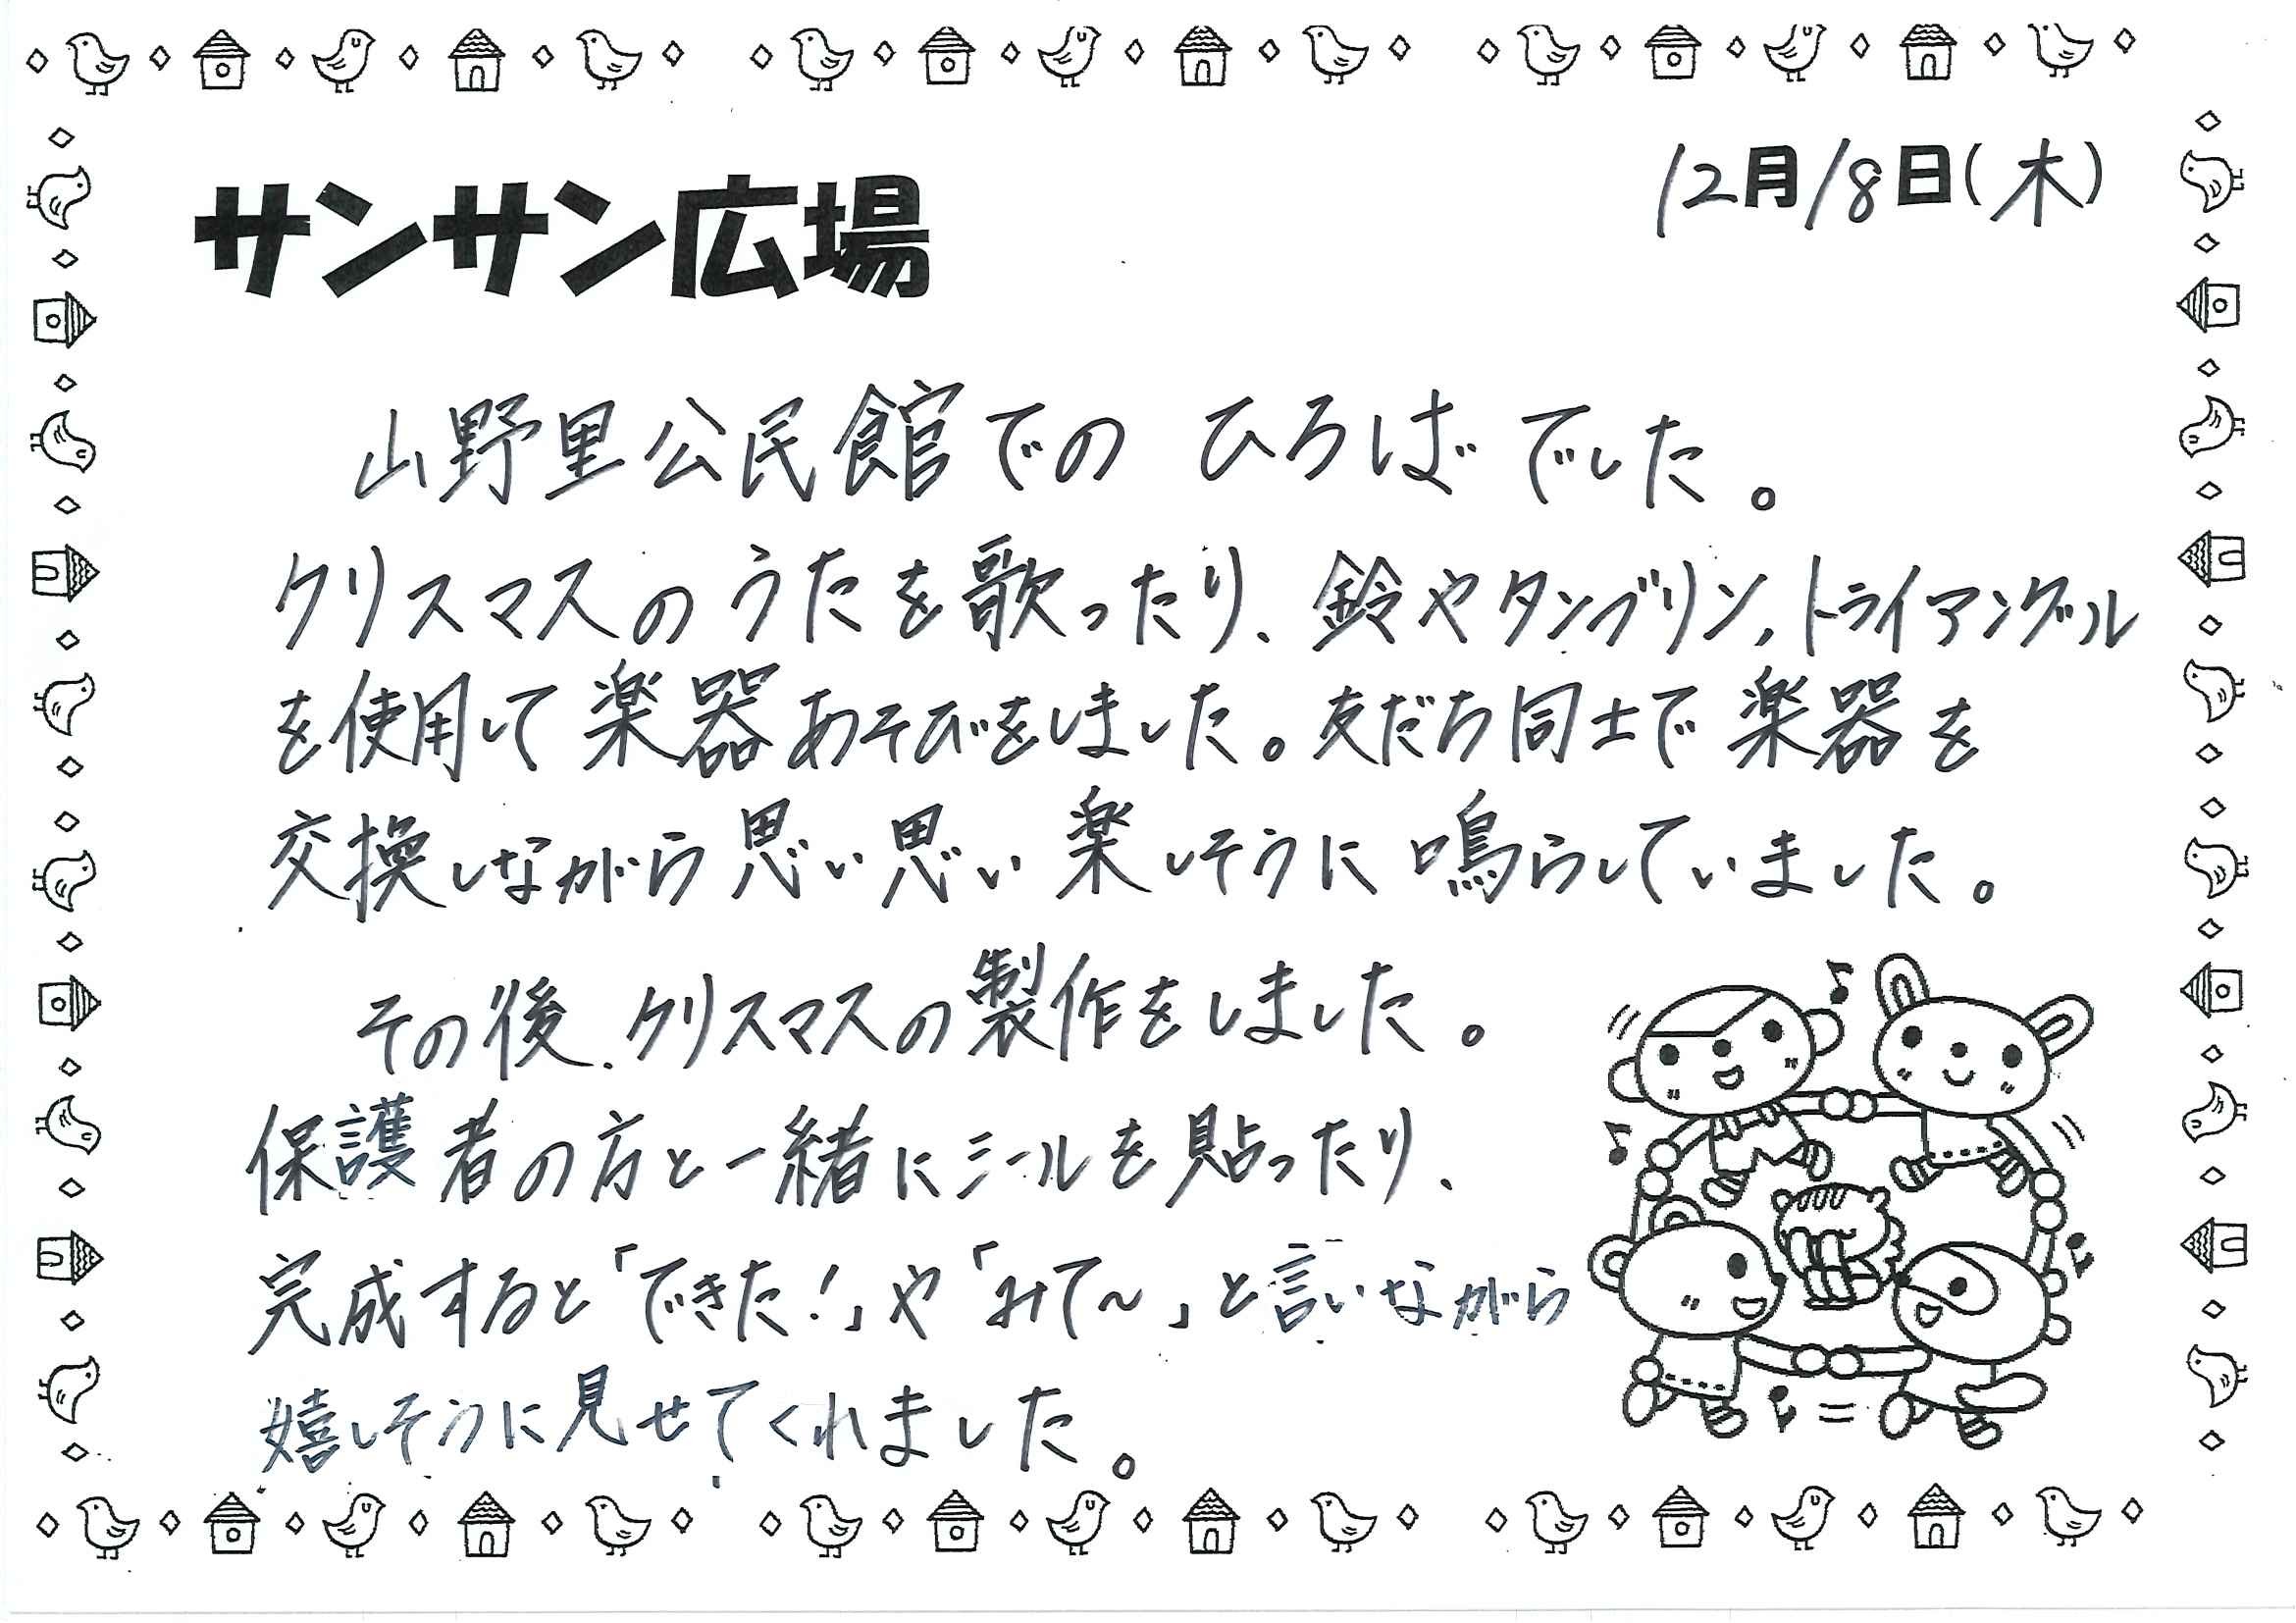 12月18日(木)
サンサン広場
山野里公民館での ひろばでした。
クリスマスのうたを歌ったり、鈴やタンブリン,トライアングル
を使用して楽器あそびをしました。友だち同士で楽器を
交換しながら思い思い楽しそうに鳴らしていました。
その後、クリスマスの製作をしました。
保護者の方と一緒にシールを貼ったり、
完成すると「できた!」や「みて～」と言いながら
嬉しそうに見せてくれました。